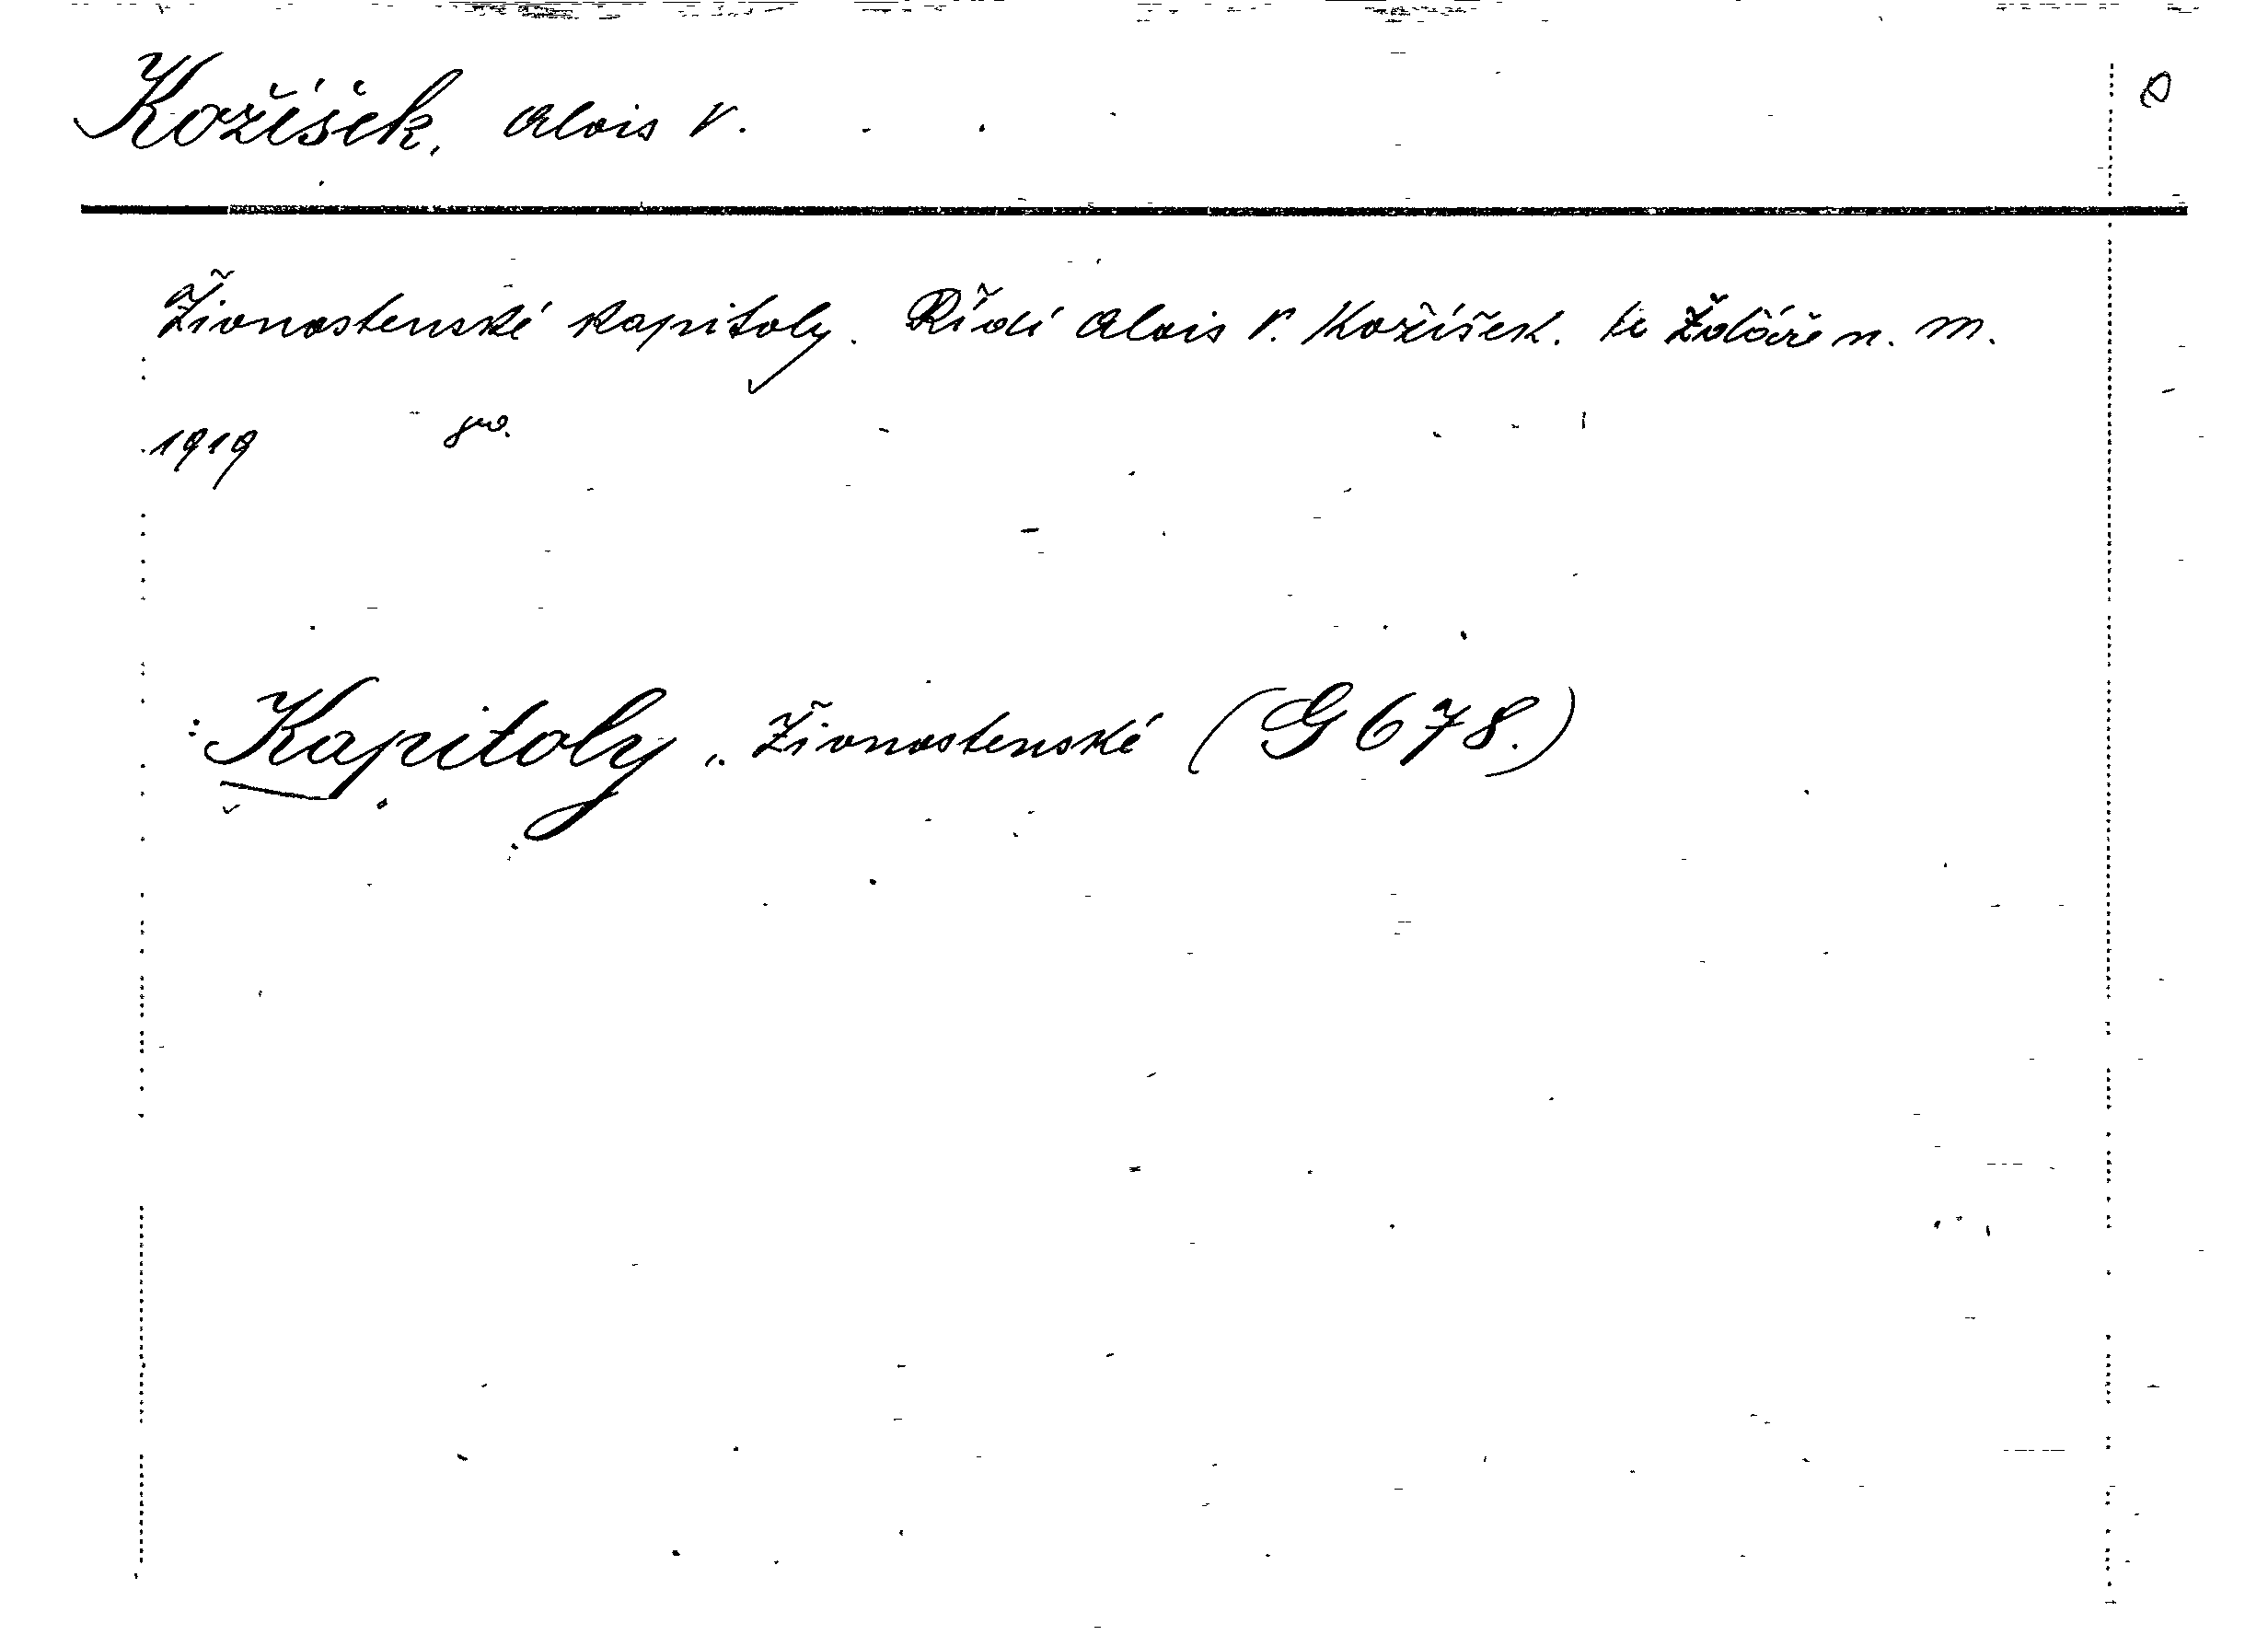 Kožíšek, Alois V.
Živnostenské kapitoly. Řídí Alois V. Kožíšek. Ve Žďáře n. M.
1919 8vo.
: Kapitoly „ Živnostenské (G 678.)